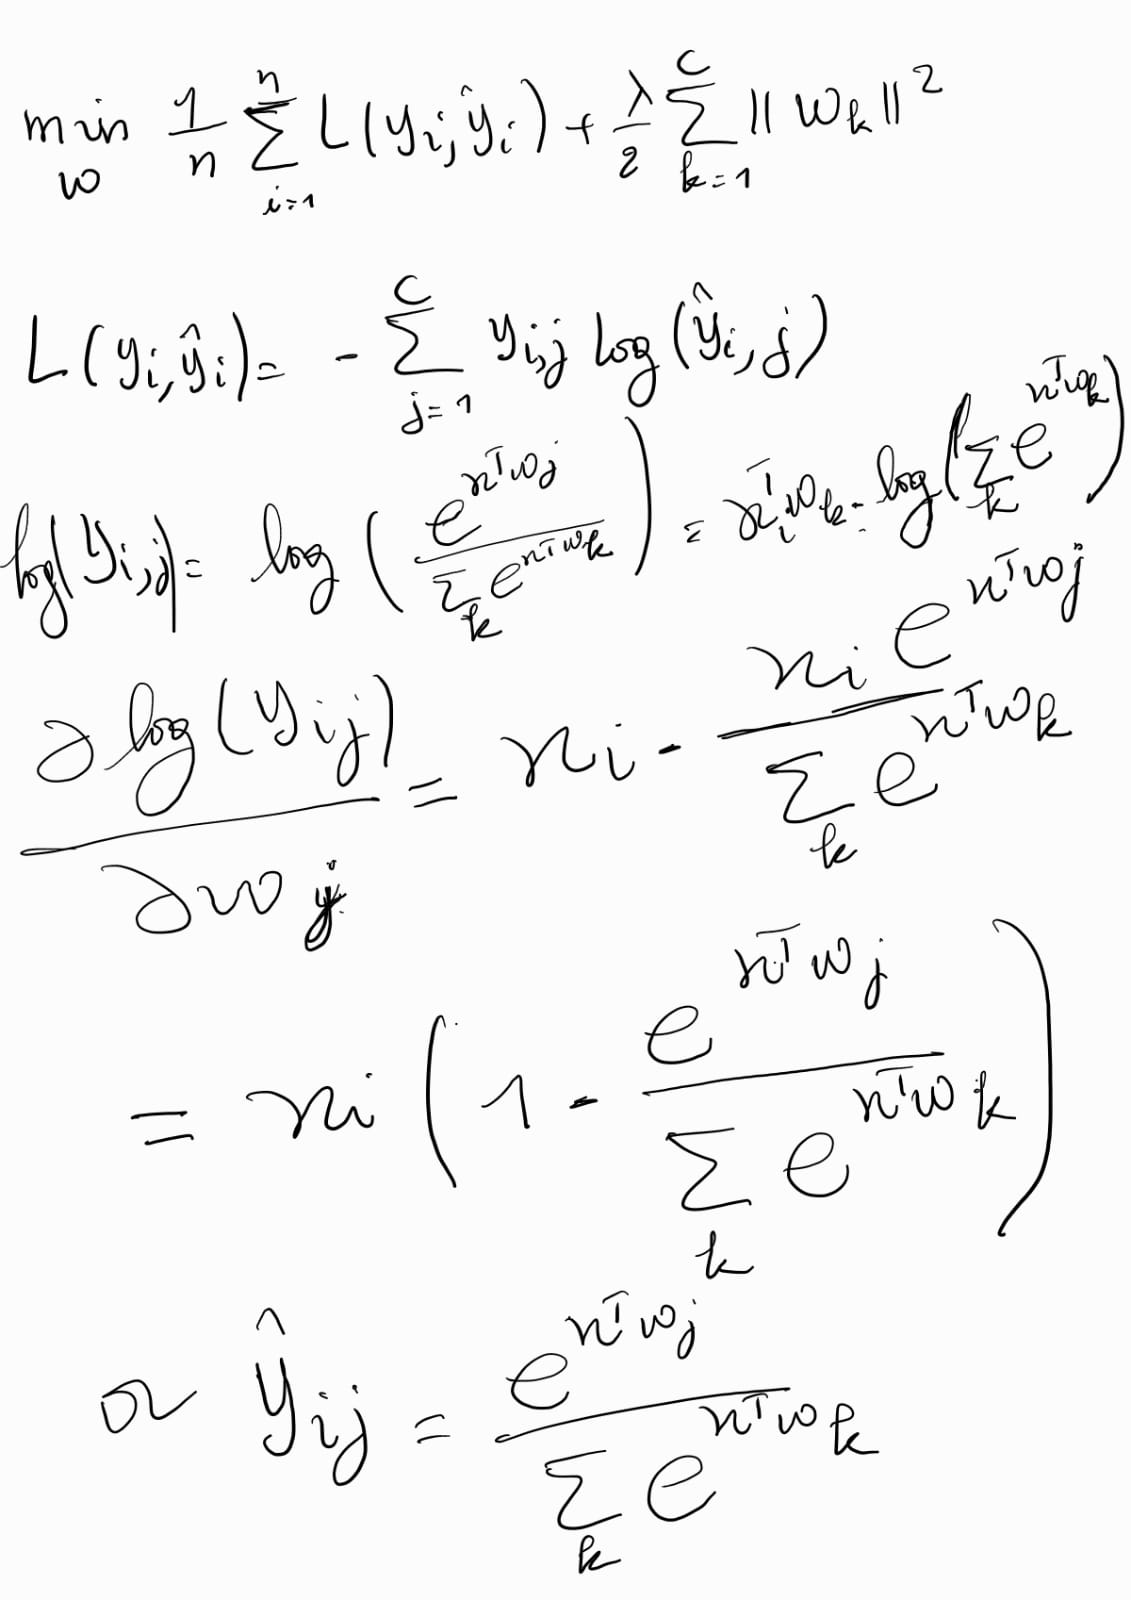 min_w 1/n Σ_{i=1}^{n} L(y_i, ŷ_i) + λ/2 Σ_{k=1}^{C} || w_k ||²
L(y_i, ŷ_i) = - Σ_{j=1}^{C} y_{i,j} log(ŷ_{i,j})
log(y_{i,j}) = log( e^{x^T w_j} / Σ_k e^{x^T w_k} ) = x_i^T w_k - log( Σ_k e^{x^T w_k} )
∂ log(y_{ij}) / ∂ w_j = x_i - x_i e^{x^T w_j} / Σ_k e^{x^T w_k}
= x_i ( 1 - e^{x^T w_j} / Σ_k e^{x^T w_k} )
or ŷ_{ij} = e^{x^T w_j} / Σ_k e^{x^T w_k}